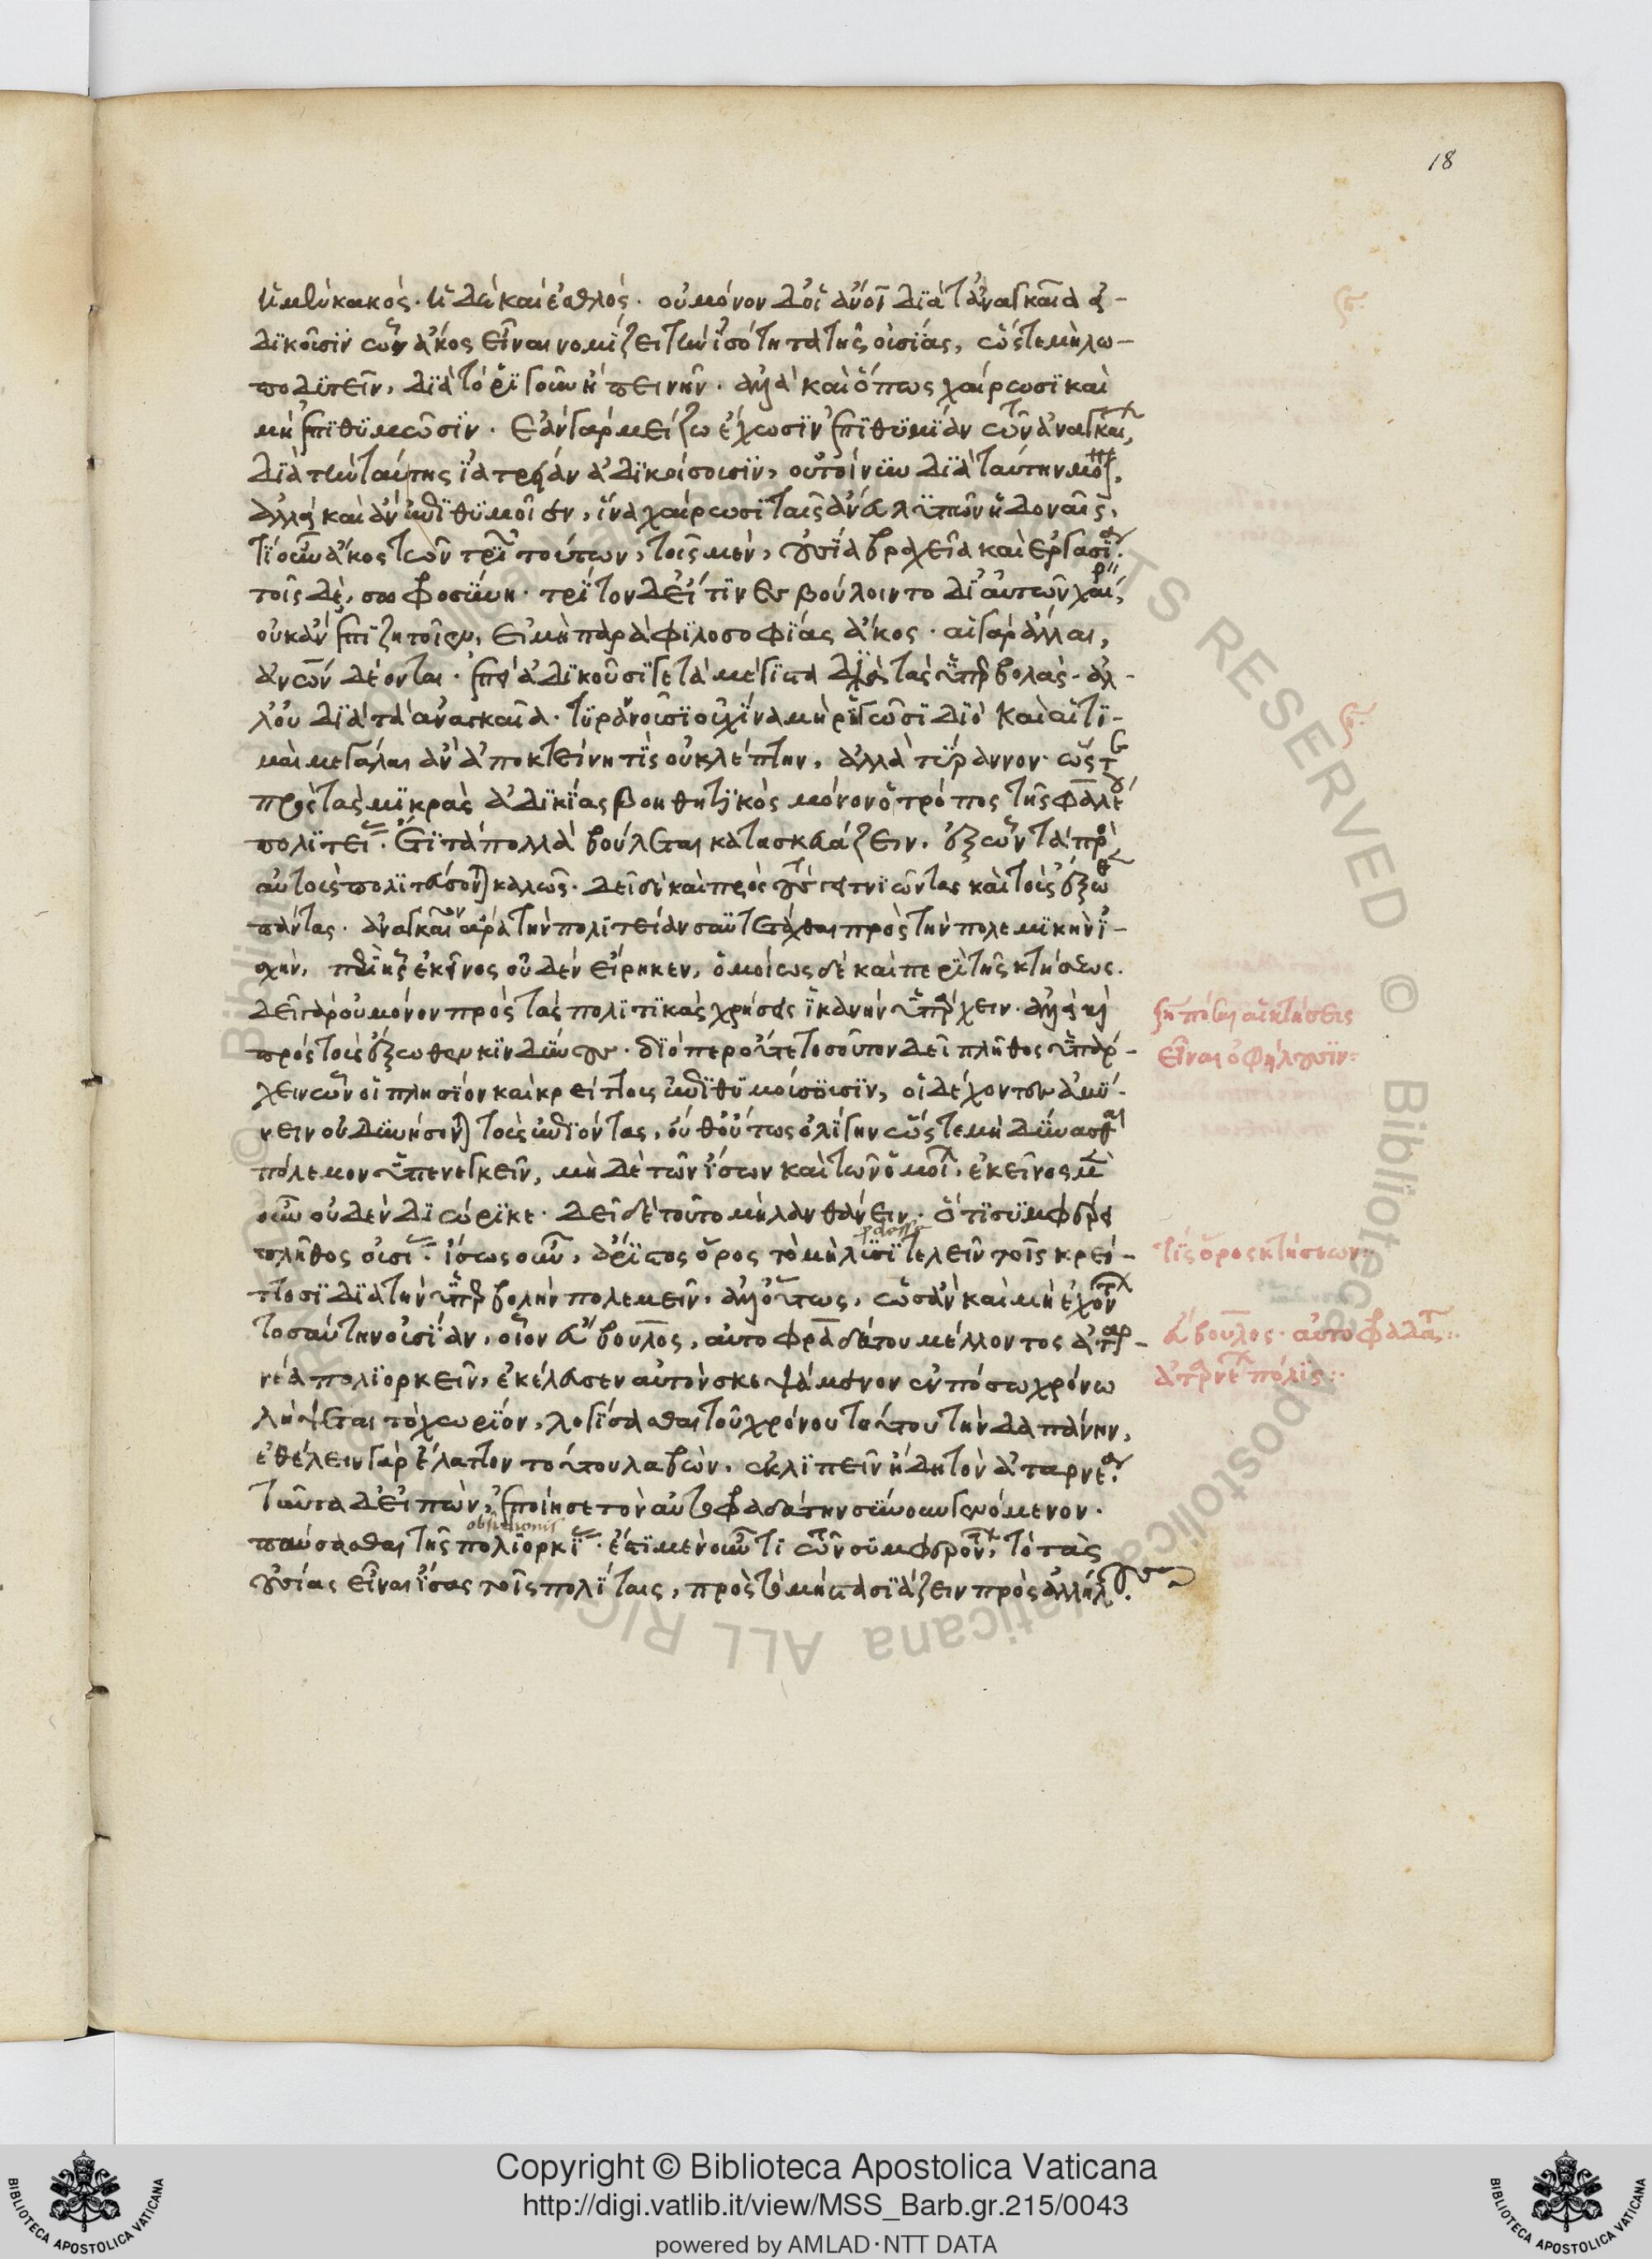 18
ἠμὲν κακὸς· ἠδὲ καὶ ἐσθλός· οὐ μόνον δ' οἱ ἄνοι διὰ τἀναγκαῖα ἀ-
δικοῦσιν ὧν ἄκος εἶναι νομίζει τὴν ἰσότητα τῆς οὐσίας, ὥστε μὴ λω-
ποδυτεῖν, διὰ τὸ ῥιγοῦν ἢ πεινῆν· ἀλλὰ καὶ ὅπως χαίρωσι καὶ
μὴ ἐπιθυμῶσιν· ἐὰν γὰρ μείζω ἔχωσιν ἐπιθυμίαν τῶν ἀναγκαί,
διὰ τὴν ταύτης ἰατρείαν ἀδικοίσουσιν, οὐ τοίνυν διὰ ταύτην μόν.
ἀλλὰ καὶ ἂν ἐπιθυμοῖεν, ἵνα χαίρωσι ταῖς ἄνευ λυπῶν ἡδοναῖς,
τί οὖν ἄκος τῶν τριῶν τούτων, τοῖς μὲν, οὐσία βραχεῖα καὶ ἐργασί·
τοῖς δὲ, σωφροσύνη· τρίτον δ' εἴ τινες βούλοιντο δι' αὐτῶν χαί,
οὐκ ἂν ἐπιζητοῖεν, εἰ μὴ παρὰ φιλοσοφίας ἄκος· αἱ γὰρ ἄλλαι,
ἀνῶν δέονται· ἐπεὶ ἀδικοῦσί γε τὰ μέγιστα διὰ τὰς ὑπερβολάς· ἀλ-
λ' οὐ διὰ τὰ αναγκαῖα· τυρανοῦσιν οὐχ ἵνα μὴ ῥιγῶσι διὸ καὶ αἱ τι-
μαὶ μεγάλαι ἂν ἀποκτείνη τὶς οὐ κλέπτην, ἀλλὰ τύραννον· ὥστ
πρὸς τὰς μικρὰς ἀδικίας βοηθητικὸς μόνον ὁ τρόπος τῆς φαλέ
πολιτεί· ἔτι τὰ πολλὰ βούλεται κατασκευάζειν, ἐξ ὧν τὰ πρὸ
αὐτοὺς πολιτεύσονται καλῶς· δεῖ δὲ καὶ πρὸς τοὺς γειτνιῶντας καὶ τοὺς ἔξωθ
πάντας· ἀναγκαῖον ἄρα τὴν πολιτείαν συντετάχθαι πρὸς τὴν πολεμικὴν ἰ-
σχὺν, περὶ ἧς ἐκεῖνος οὐδὲν εἴρηκεν, ὁμοίως δὲ καὶ περὶ τῆς κτήσεως.
δεῖ γὰρ οὐ μόνον πρὸς τὰς πολιτικὰς χρήσεις ἱκανὴν ὑπάρχειν· ἀλλὰ καὶ
πρὸς τοὺς ἔξωθεν κινδύνους· διόπερ οὔτε τοσοῦτον δεῖ πλῆθος ὑπάρ-
χειν ὧν οἱ πλησίον καὶ κρείττους ἐπιθυμοίσουσιν, οἱ δ' ἔχοντες ἀμύ-
νειν οὐ δυνήσονται τοὺς ἐπιόντας, οὔθ' οὕτως ὀλίγην ὥστε μὴ δύνασθαι
πόλεμον ὑπενεγκεῖν, μηδὲ τῶν ἴσων καὶ τῶν ὁμοί· ἐκεῖνος μὲ
οὖν οὐδὲν διώρικε· δεῖ δὲ τοῦτο μὴ λανθάνειν· ὅ τι συμφέρει
πλῆθος οὐσί· ἴσως οὖν, ἄριστος ὅρος τὸ μὴ λυσιτελεῖν τοῖς κρεί-
ττοσι διὰ τὴν ὑπερβολὴν πολεμεῖν· ἀλλ' οὕτως, ὡς ἂν καὶ μὴ ἐχόντ
τοσαύτην οὐσίαν, οἷον εὔβουλος, αὐτοφραδάτου μέλλοντος ἀταρ-
νέα πολιορκεῖν, ἐκέλευσεν αὐτὸν σκεψάμενον ἐν πόσω χρόνω
λήψεται τὸ χωρίον, λογίσασθαι τοῦ χρόνου τούτου τὴν δαπάνην,
ἐθέλειν γὰρ ἔλαττον τούτου λαβὼν, ἐκλιπεῖν ἤδη τὸν ἀταρνέ·
ταῦτα δ' εἰπὼν, ἐποίησε τὸν αὐτοφραδάτην σύννουν γενόμενον·
obsidionis
παύσασθαι τῆς πολιορκί· ἔστι μὲν οὖν τι τῶν συμφερόντ, τὸ τὰς
οὐσίας εἶναι ἴσας τοῖς πολίταις, πρὸς τὸ μὴ στασιάζειν πρὸς ἀλλήλ.
εἶναι ὀφείλουσιν:
τίς ὅρος κτήσεων:
εὔβουλος· αὐτοφραδάτ:
ἀταρνέ πόλις:
Copyright © Biblioteca Apostolica Vaticana
http://digi.vatlib.it/view/MSS_Barb.gr.215/0043
powered by AMLAD·NTT DATA
BIBLIOTECA APOSTOLICA VATICANA
BIBLIOTECA APOSTOLICA VATICANA